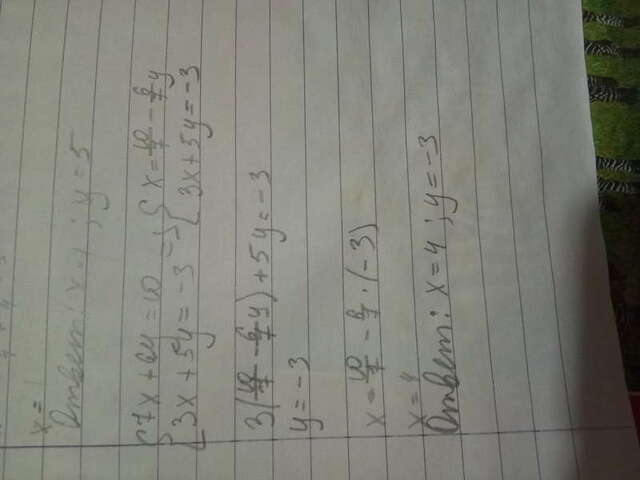 x=
Ответ: x= ; y=5
{ 7x+6y=10 => { x=10/7-6/7y
{ 3x+5y=-3 { 3x+5y=-3
3(10/7-6/7y)+5y=-3
y=-3
x=10/7-6/7·(-3)
x=4
Ответ: x=4 ; y=-3